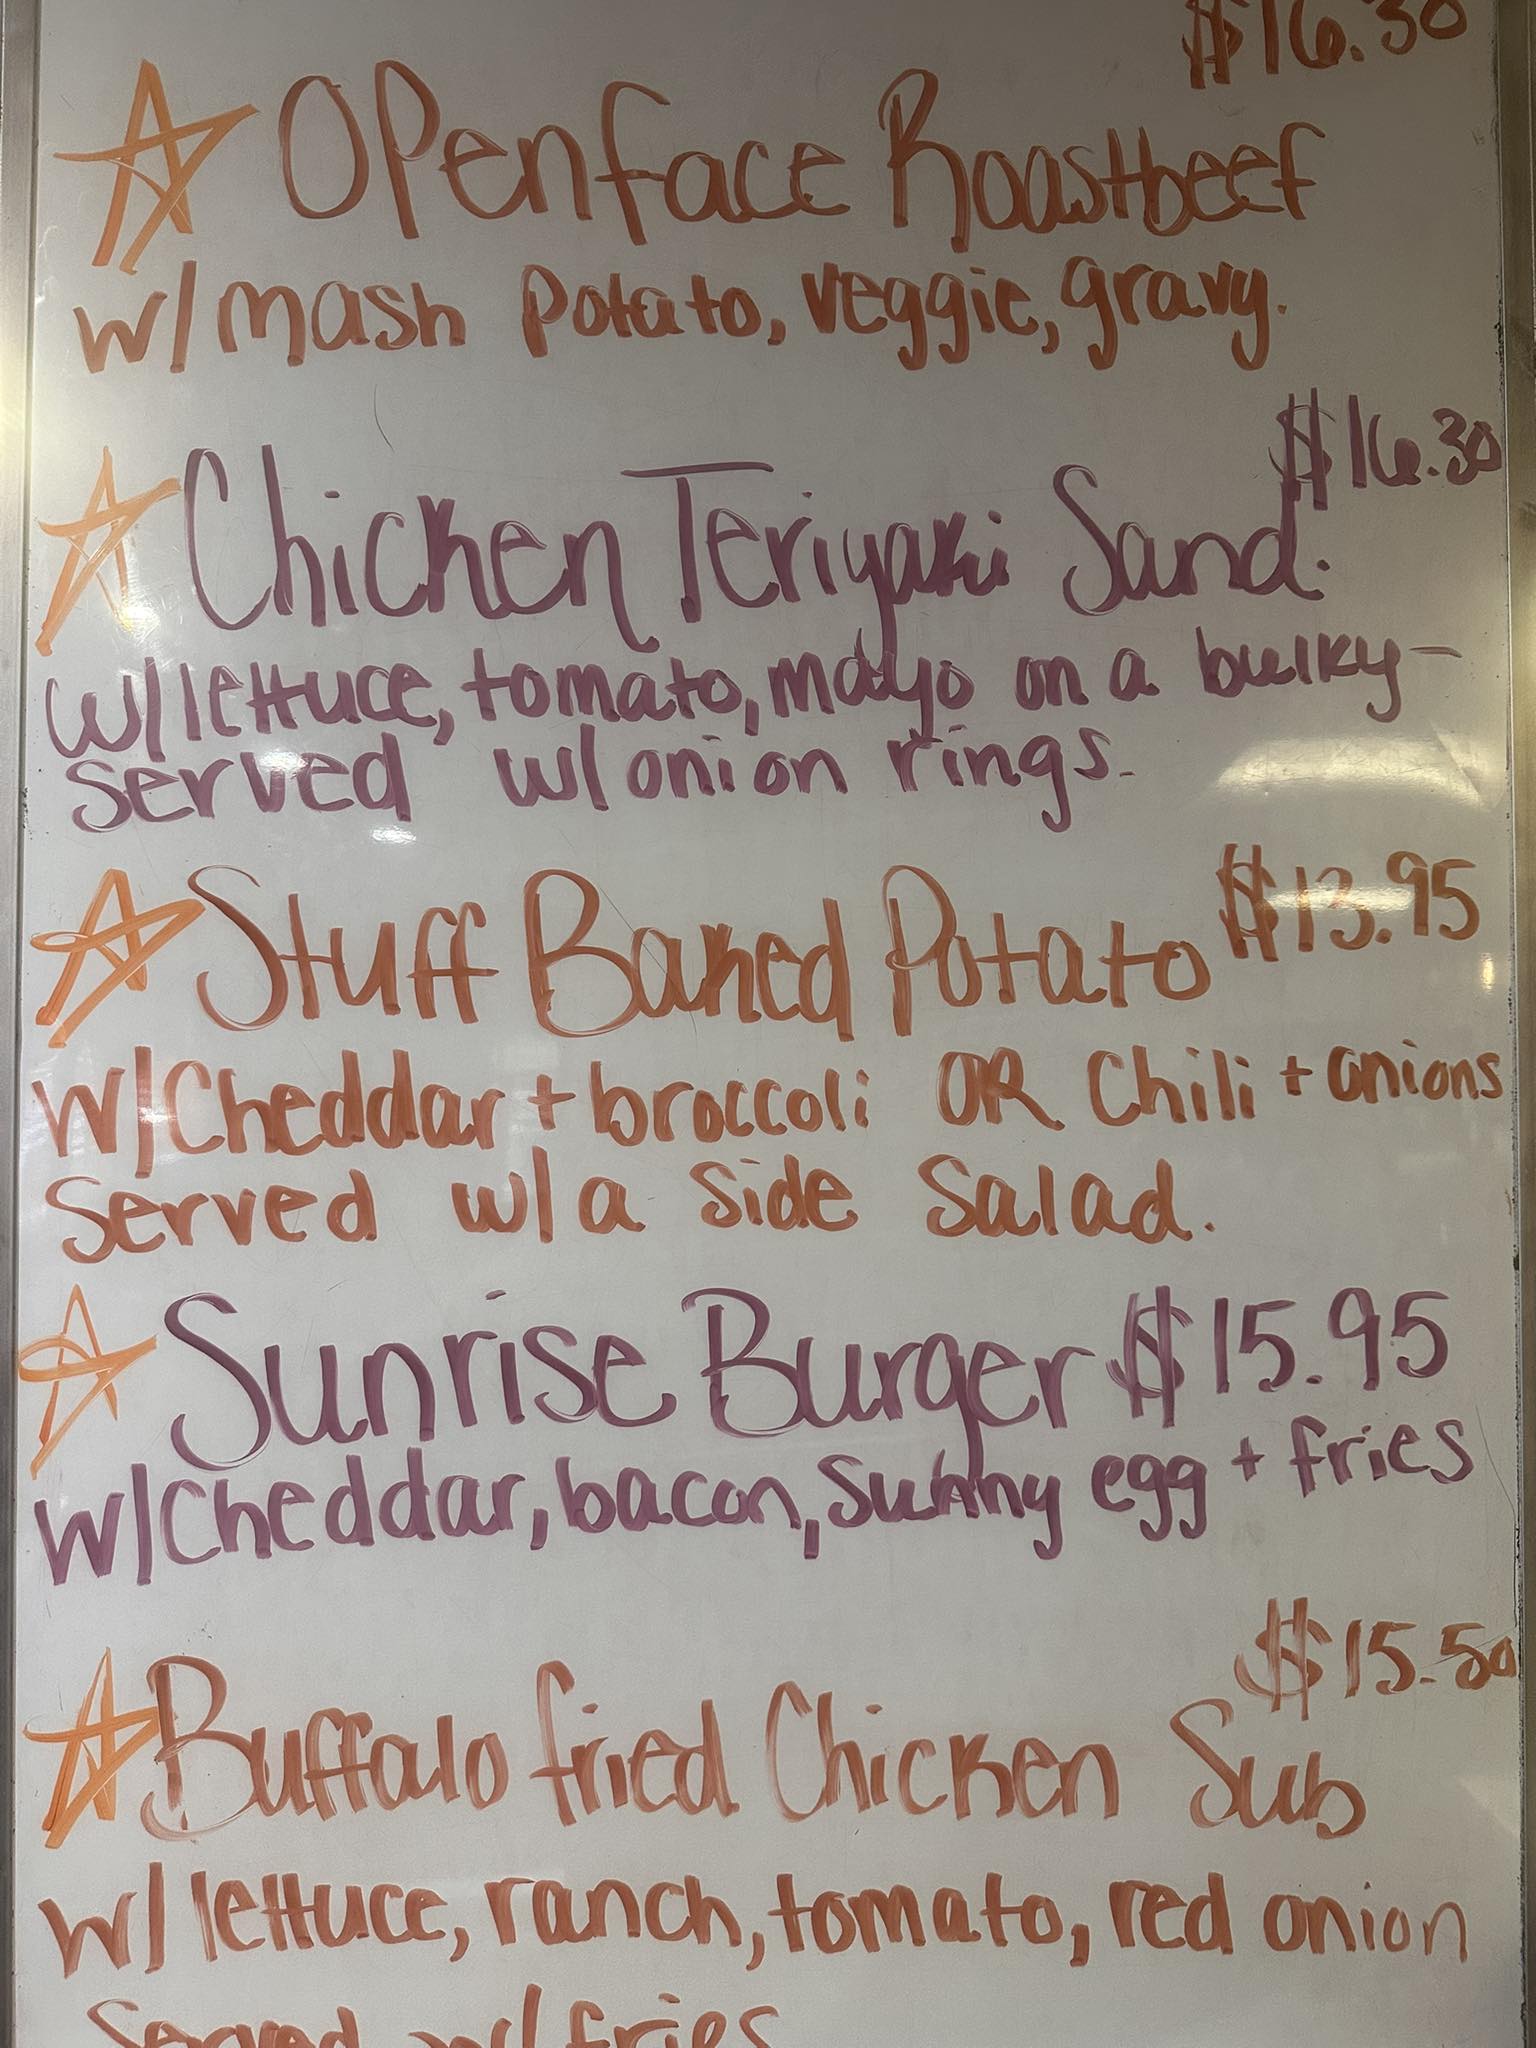 $16.30
Openface Roastbeef
w/mash potato, veggie, gravy.
$16.30
Chicken Teriyaki Sand.
w/lettuce, tomato, mayo on a bulky-
served w/onion rings.
Stuff Baked Potato $13.95
w/Cheddar + broccoli OR Chili + onions
Served w/a side Salad.
Sunrise Burger $15.95
w/Cheddar, bacon, Sunny egg + fries
$15.50
Buffalo fried Chicken Sub
w/lettuce, ranch, tomato, red onion
Served w/fries